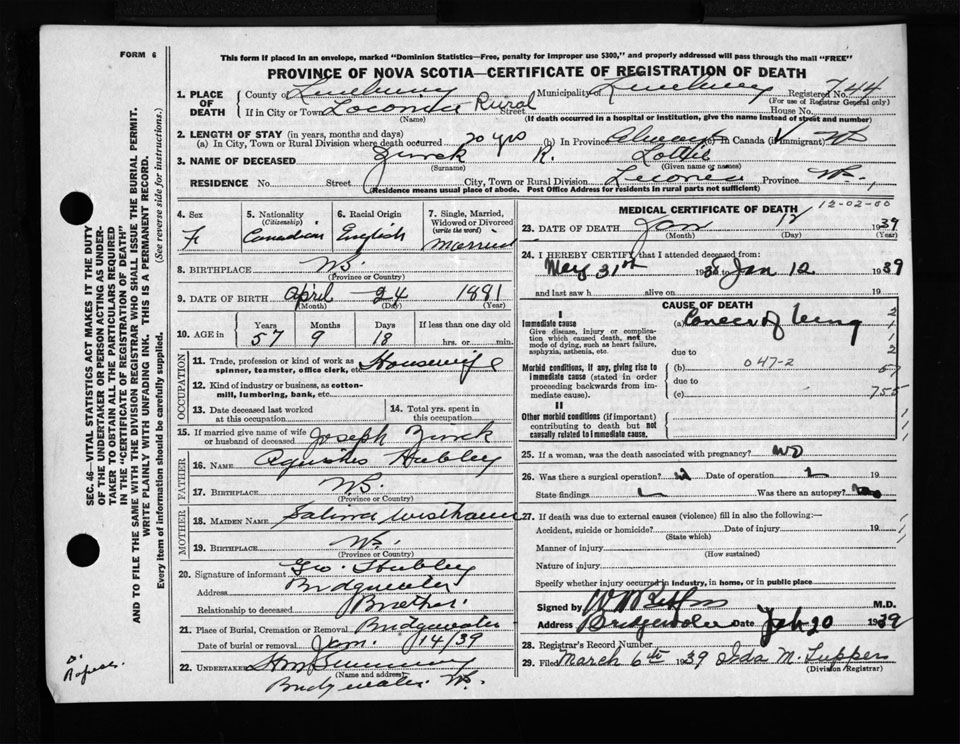 FORM 6
This form if placed in an envelope, marked "Dominion Statistics—Free, penalty for improper use $300," and properly addressed will pass through the mail "FREE"
PROVINCE OF NOVA SCOTIA—CERTIFICATE OF REGISTRATION OF DEATH
SEC. 46—VITAL STATISTICS ACT MAKES IT THE DUTY
OF THE UNDERTAKER OR PERSON ACTING AS UNDER-
TAKER TO OBTAIN ALL THE PARTICULARS REQUIRED
IN THE "CERTIFICATE OF REGISTRATION OF DEATH"
AND TO FILE THE SAME WITH THE DIVISION REGISTRAR WHO SHALL ISSUE THE BURIAL PERMIT.
WRITE PLAINLY WITH UNFADING INK. THIS IS A PERMANENT RECORD.
Every item of information should be carefully supplied. (See reverse side for instructions.)
1. PLACE OF DEATH
County of Lunenburg Municipality of Lunenburg Registered No. 744
(For use of Registrar General only)
If in City or Town Rural Street House No.
(Name) (If death occurred in a hospital or institution, give the name instead of street and number)
2. LENGTH OF STAY (in years, months and days)
(a) In City, Town or Rural Division where death occurred 20 yrs (b) In Province Always (c) In Canada (if immigrant)
3. NAME OF DECEASED Zinck K. Lottie
(Surname) (Given name or names)
RESIDENCE No. Street City, Town or Rural Division Province N.S.,
(Residence means usual place of abode. Post Office Address for residents in rural parts not sufficient)
4. Sex
F.
5. Nationality
(Citizenship)
Canadian
6. Racial Origin
English
7. Single, Married, Widowed or Divorced
(write the word)
Married
8. BIRTHPLACE N.S.
(Province or Country)
9. DATE OF BIRTH April 24 1881
(Month) (Day) (Year)
10. AGE in
Years Months Days If less than one day old
57 9 18 hrs. or min.
OCCUPATION
11. Trade, profession or kind of work as spinner, teamster, office clerk, etc. Housewife
12. Kind of industry or business, as cotton-mill, lumbering, bank, etc.
13. Date deceased last worked at this occupation
14. Total yrs. spent in this occupation
15. If married give name of wife or husband of deceased Joseph Zinck
FATHER
16. NAME Hubley
17. BIRTHPLACE N.S.
(Province or Country)
MOTHER
18. MAIDEN NAME
19. BIRTHPLACE N.S.
(Province or Country)
20. Signature of informant Geo. Hubley
Address Bridgewater
Relationship to deceased Brother.
21. Place of Burial, Cremation or Removal Bridgewater
Date of burial or removal Jan. 14/39
22. UNDERTAKER
(Name and address)
Bridgewater N.S.
MEDICAL CERTIFICATE OF DEATH 12-02-00
23. DATE OF DEATH Jan 12 1939
(Month) (Day) (Year)
24. I HEREBY CERTIFY that I attended deceased from:
May 31st 1938 to Jan 12 1939
and last saw h alive on 19
CAUSE OF DEATH
I
Immediate cause
Give disease, injury or complication which caused death, not the mode of dying, such as heart failure, asphyxia, asthenia, etc.
(a) Cancer of lung
due to
Morbid conditions, if any, giving rise to immediate cause (stated in order proceeding backwards from immediate cause).
(b) 047-2
due to
(c)
755
II
Other morbid conditions (if important) contributing to death but not causally related to immediate cause.
25. If a woman, was the death associated with pregnancy? no
26. Was there a surgical operation? Date of operation 19
State findings Was there an autopsy?
27. If death was due to external causes (violence) fill in also the following:—
Accident, suicide or homicide? Date of injury 19
(State which)
Manner of injury
(How sustained)
Nature of injury
Specify whether injury occurred in industry, in home, or in public place
Signed by M.D.
Address Bridgewater Date Feb 20 1939
28. Registrar's Record Number
29. Filed March 6th 1939 Ida M. Tupper
(Division Registrar)